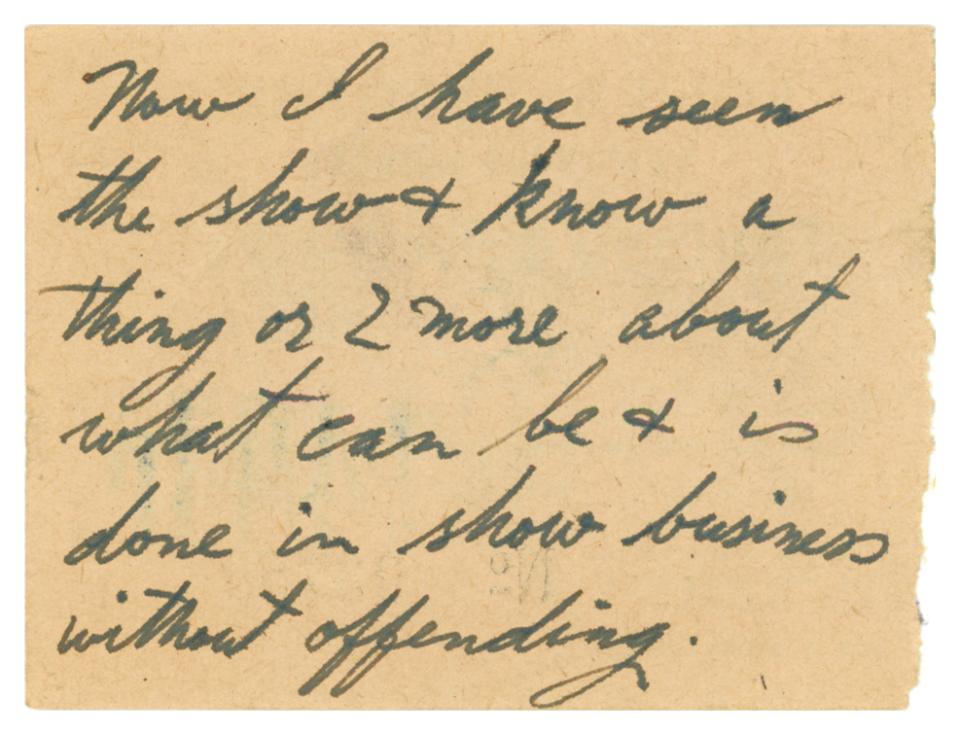 Now I have seen
the show & know a
thing or 2 more about
what can be & is
done in show business
without offending.